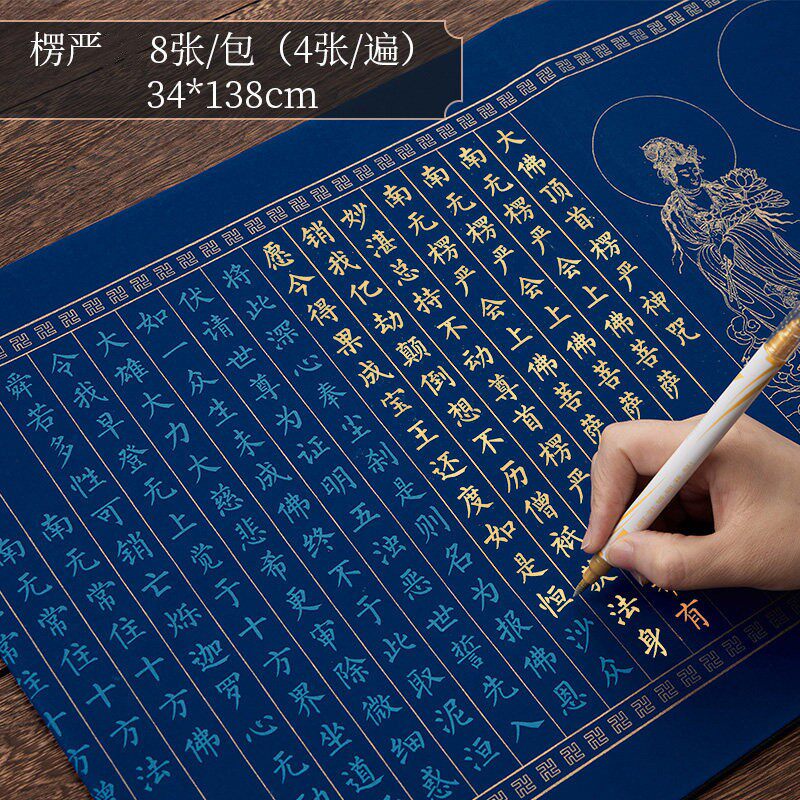 楞严 8张/包（4张/遍）
34*138cm
大佛顶首楞严神咒
南无楞严会上佛菩萨
南无楞严会上佛菩萨
南无楞严会上佛菩萨
妙湛总持不动尊首楞严有
销我亿劫颠倒想不历僧祇法身
愿今得果成宝王还度如是恒沙众
将此深心奉尘刹是则名为报佛恩
伏请世尊为证明五浊恶世誓先入
如一众生未成佛终不于此取泥洹
大雄大力大慈悲希更审除微细惑
令我早登无上觉于十方界坐道
舜若多性可销亡烁迦罗心无
南无常住十方佛
南无常住十方法
常住十方僧